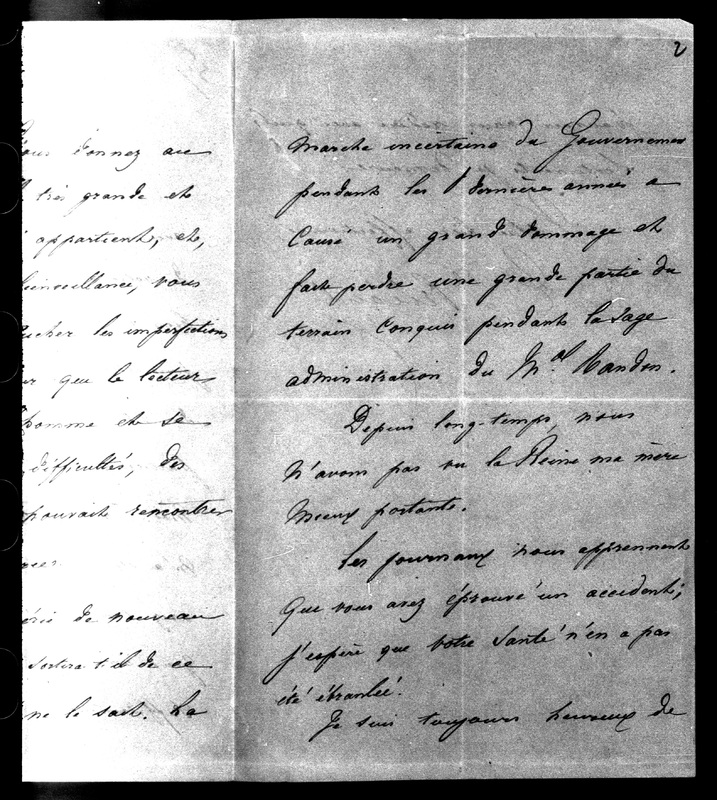 2
vous donnez au
très grande et
appartient, et,
bienveillance, vous
les imperfections
que le lecteur
homme et se
difficultés, des
pouvait rencontrer
de nouveau
sortira t-il de ce
ne le sait. La
marche incertaine du Gouvernemen
pendant les dernières années a
causé un grand dommage et
fait perdre une grande partie du
terrain conquis pendant la sage
administration du Mal Randon.
Depuis long-temps, nous
n'avons pas vu la Reine ma mère
mieux portante.
Les journaux nous apprennent
que vous avez éprouvé un accident;
j'espère que votre santé n'en a pas
été ébranlée.
Je suis toujours heureux de